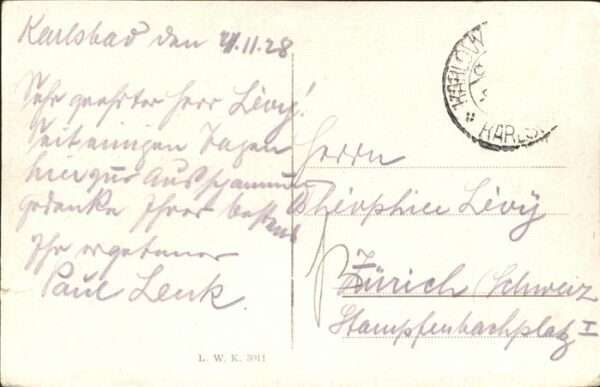 Karlsbad den 21.11.28
Sehr geehrter Herr Lévy!
Seit einigen Tagen
hier zur Ausspannung
gedenke Ihrer bestens
Ihr ergebener
Paul Lenk.
Herrn
Théophile Lévy
Zürich (Schweiz
Stampfenbachplatz I
KARLOV
KARLS
L. W. K. 5011